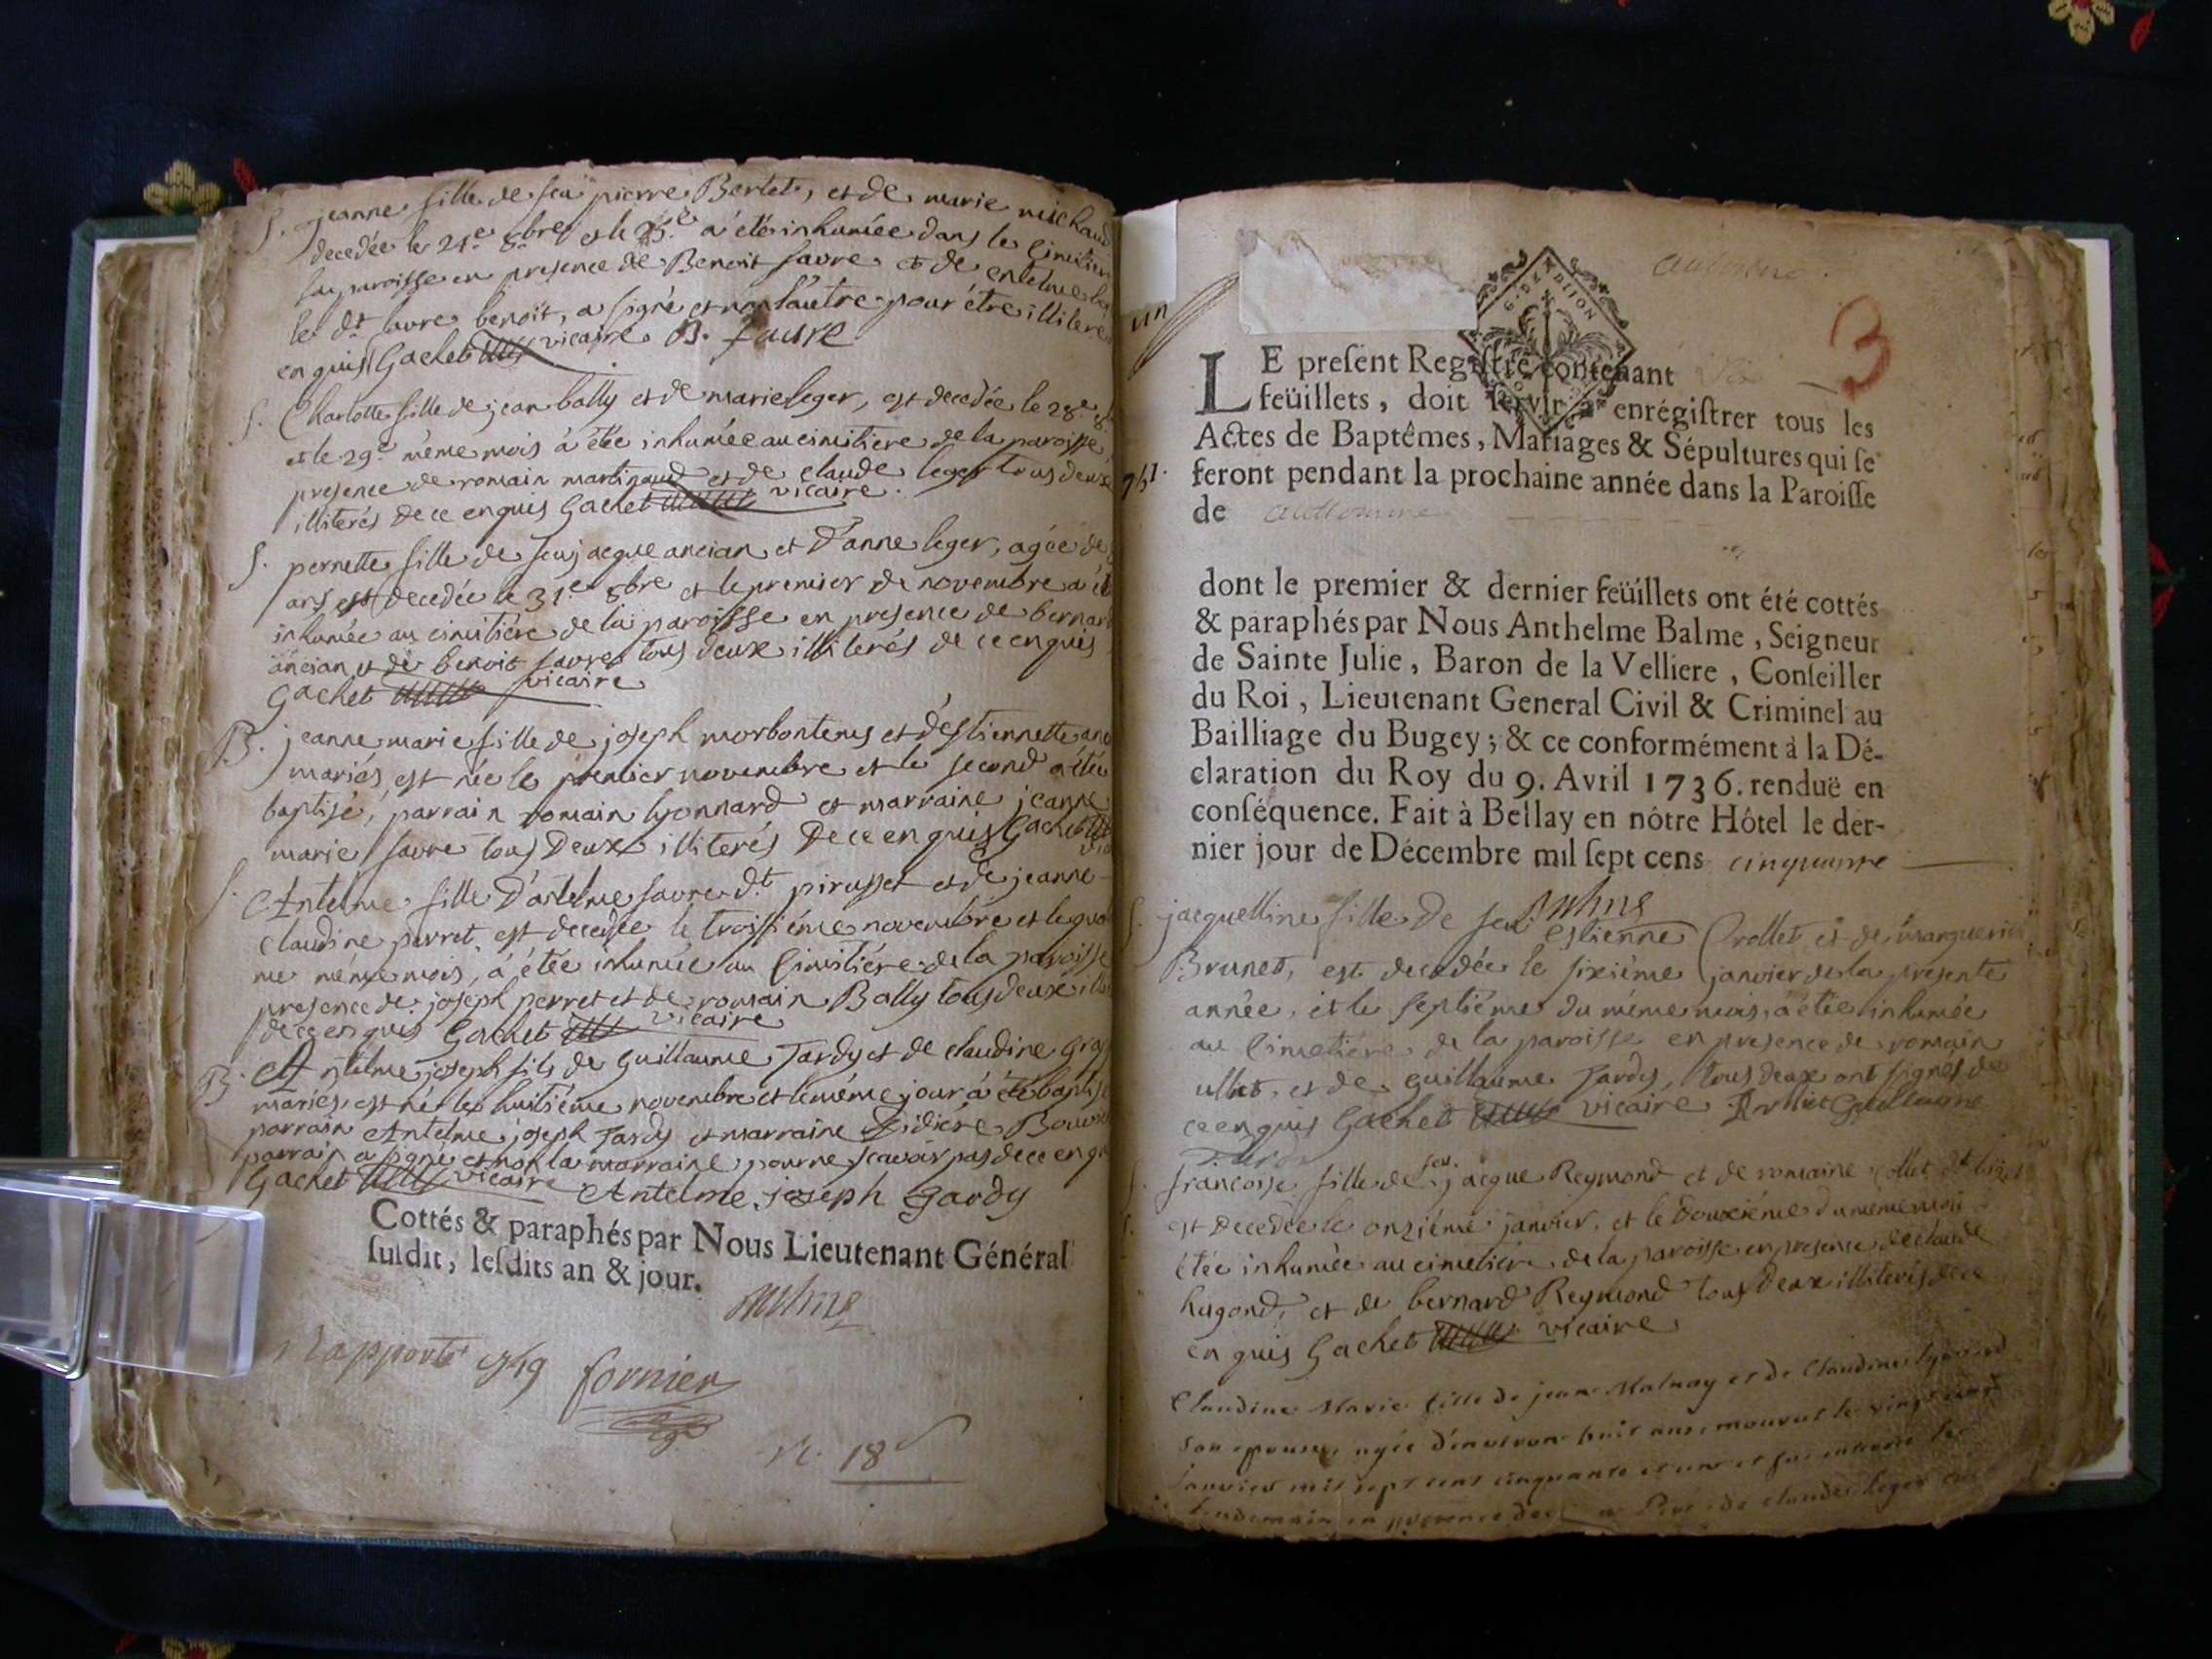 S. jeanne fille de feu pierre Bertet, et de marie michaud
decedée le 24e 8bre et le 25e a été inhumée dans le cimitier
la paroisse en presence de Benoit favre et de
le dt favre benoit, a signé et non l'autre pour être illiteré
enquis Gachet vicaire B. favre
S. Charlotte fille de jean bally et de marie leger, est decedée le 28e
et le 29e même mois à été inhumée au cimitiere de la paroisse
presence de romain martinaud et de claude leger tous deux
illiterés de ce enquis Gachet vicaire.
S. pernette fille de feu jacque ancian et d'anne leger, agée de
ans est decedée le 31e 8bre et le premier de novembre a été
inhumée au cimitiére de la paroisse en presence de bernard
ancian et de benoit favre tous deux illiterés de ce enquis
Gachet vicaire
B. jeanne marie fille de joseph morbontems et d'estiennette
mariés, est née le premier novembre et le second a étée
baptisé, parrain romain lyonnard et marraine jeanne
marie favre tous deux illiterés de ce enquis Gachet
S. Antelme fille d'antelme favre dt pirusset et de jeanne
claudine perret, est decedée le troisiéme novembre et le
me même mois, à étée inhumée au cimitiére de la paroisse
presence de joseph perret et de romain Bally tous deux
de ce enquis Gachet vicaire
B. Antelme joseph fils de Guillaume Tardy et de claudine
mariés, est né le huitiéme novembre et le même jour à été baptisé
parrain Antelme joseph Tardy et marraine
parrain a signé et non la marraine pour ne scavoir pas de ce enquis
Gachet vicaire Antelme joseph tardy
Cottés & paraphés par Nous Lieutenant Général
susdit, lesdits an & jour.
Balme
Rapporté 1749 fornier
18
un
G. DE DIJON
3
LE present Registre contenant
feüillets, doit servir à enrégistrer tous les
Actes de Baptêmes, Mariages & Sépultures qui se
feront pendant la prochaine année dans la Paroisse
de
751.
dont le premier & dernier feüillets ont été cottés
& paraphés par Nous Anthelme Balme, Seigneur
de Sainte Julie, Baron de la Velliere, Conseiller
du Roi, Lieutenant General Civil & Criminel au
Bailliage du Bugey; & ce conformément à la Dé-
claration du Roy du 9. Avril 1736. renduë en
conséquence. Fait à Bellay en nôtre Hôtel le der-
nier jour de Décembre mil sept cens cinquante
Balme
S. jacquelline fille de feu estienne Crollet et de marguerite
Brunet, est decedée le sixiéme janvier de la presente
année, et le septiéme du même mois, a étée inhumée
au cimetiére de la paroisse en presence de romain
ulliet, et de guillaume Tardy, tous deux ont signés de
ce enquis Gachet vicaire R ulliet Guillaume
Tardy
S. francoise fille de feu jacque Reymond et de romaine
est decedée le onziéme janvier, et le douxiéme du même mois
étée inhumée au cimetiére de la paroisse en presence de claude
hugond, et de bernard Reymond tous deux illiterés de ce
enquis Gachet vicaire
Claudine Marie fille de jean Malnay et de Claudine lyonnard
son epouse, agée d'environ huit ans, mourut le vingt
janvier mil sept cent cinquante et un et fut enterrée le
lendemain en presence de Pere de claude leger